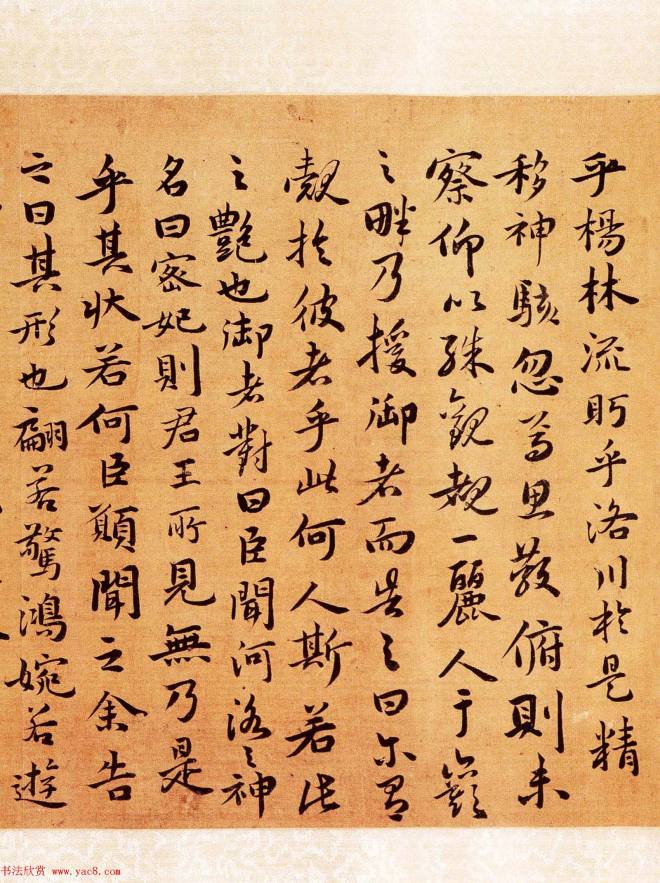 乎楊林流盻乎洛川於是精
移神駭忽焉思散俯則未
察仰以殊觀覩一麗人于巖
之畔乃援御者而告之曰尔有
覿於彼者乎此何人斯若此
之艷也御者對曰臣聞河洛之神
名曰宓妃則君王所見無乃是
乎其狀若何臣願聞之余告
之曰其形也翩若驚鴻婉若遊
书法欣赏 www.yac8.com